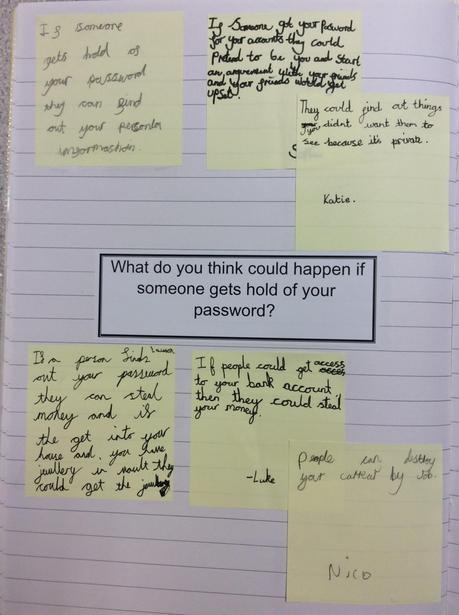 If someone
gets hold of
your password
they can find
out your personla
information.
If Someone got your Password
for your accounts they could
Pretend to be you and start
an argument with your friends
and your friends would get
upset.
S
They could find out things
you didnt want them to
see because it's private.
Katie.
What do you think could happen if
someone gets hold of your
password?
If a person finds
out your password
they can steal
money and if
the get into your
house and, you have
jewllery in vault they
could get the
If people could get access
to your bank account
then they could steal
your money.
-Luke
People can destroy
your by Job.
Nico